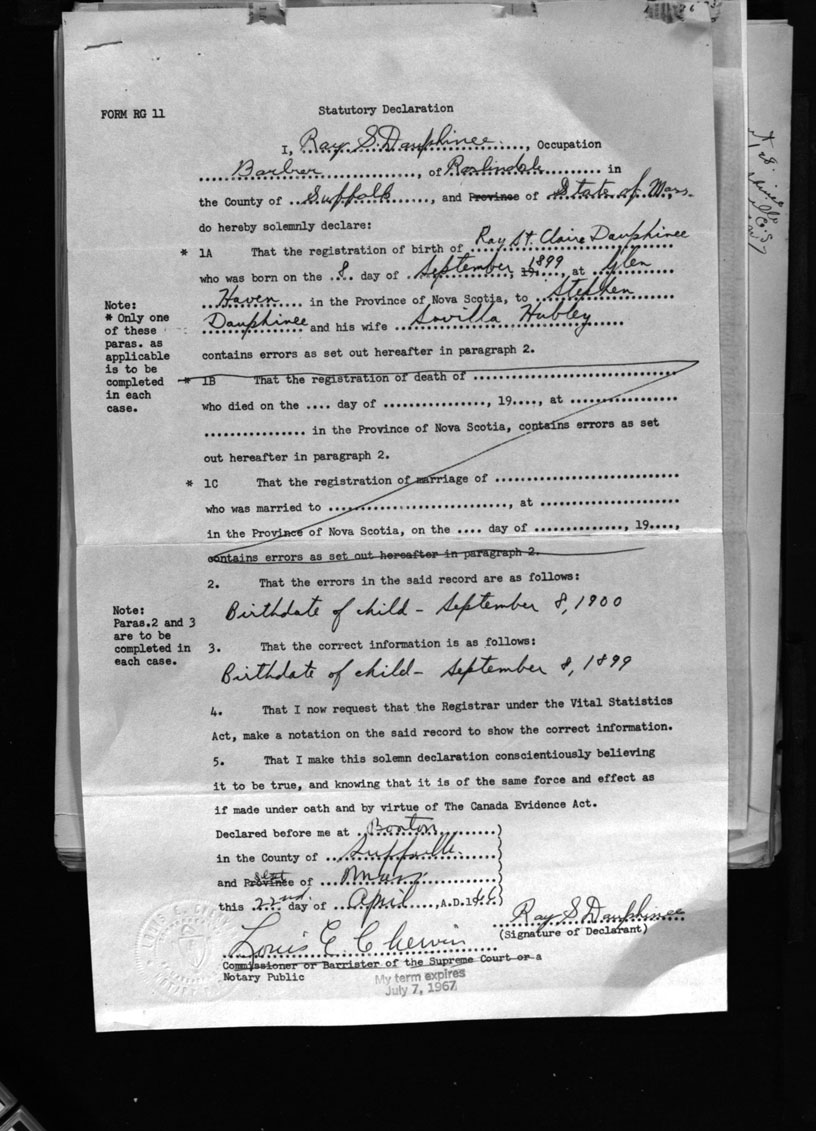 FORM RG 11
Statutory Declaration
I, Ray S. Dauphinee, Occupation
Barber, of Roslindale in
the County of Suffolk, and Province of State of Mass.
do hereby solemnly declare:
* 1A That the registration of birth of Ray St. Claire Dauphinee
who was born on the 8 day of September, 19 1899, at Glen
Haven in the Province of Nova Scotia, to Stephen
Dauphinee and his wife Sovilla Hubley
contains errors as set out hereafter in paragraph 2.
Note:
* Only one
of these
paras. as
applicable
is to be
completed
in each
case.
* 1B That the registration of death of
who died on the .... day of ................, 19...., at
................ in the Province of Nova Scotia, contains errors as set
out hereafter in paragraph 2.
* 1C That the registration of marriage of
who was married to ............................, at
in the Province of Nova Scotia, on the .... day of .............., 19....,
contains errors as set out hereafter in paragraph 2.
2. That the errors in the said record are as follows:
Birthdate of child - September 8, 1900
Note:
Paras.2 and 3
are to be
completed in
each case.
3. That the correct information is as follows:
Birthdate of child - September 8, 1899
4. That I now request that the Registrar under the Vital Statistics
Act, make a notation on the said record to show the correct information.
5. That I make this solemn declaration conscientiously believing
it to be true, and knowing that it is of the same force and effect as
if made under oath and by virtue of The Canada Evidence Act.
Declared before me at Boston
in the County of Suffolk
and Province of Mass
this 22nd day of April, A.D.1966
Ray S Dauphinee
(Signature of Declarant)
Louis E Cherwin
Commissioner or Barrister of the Supreme Court or a
Notary Public
My term expires
July 7, 1967